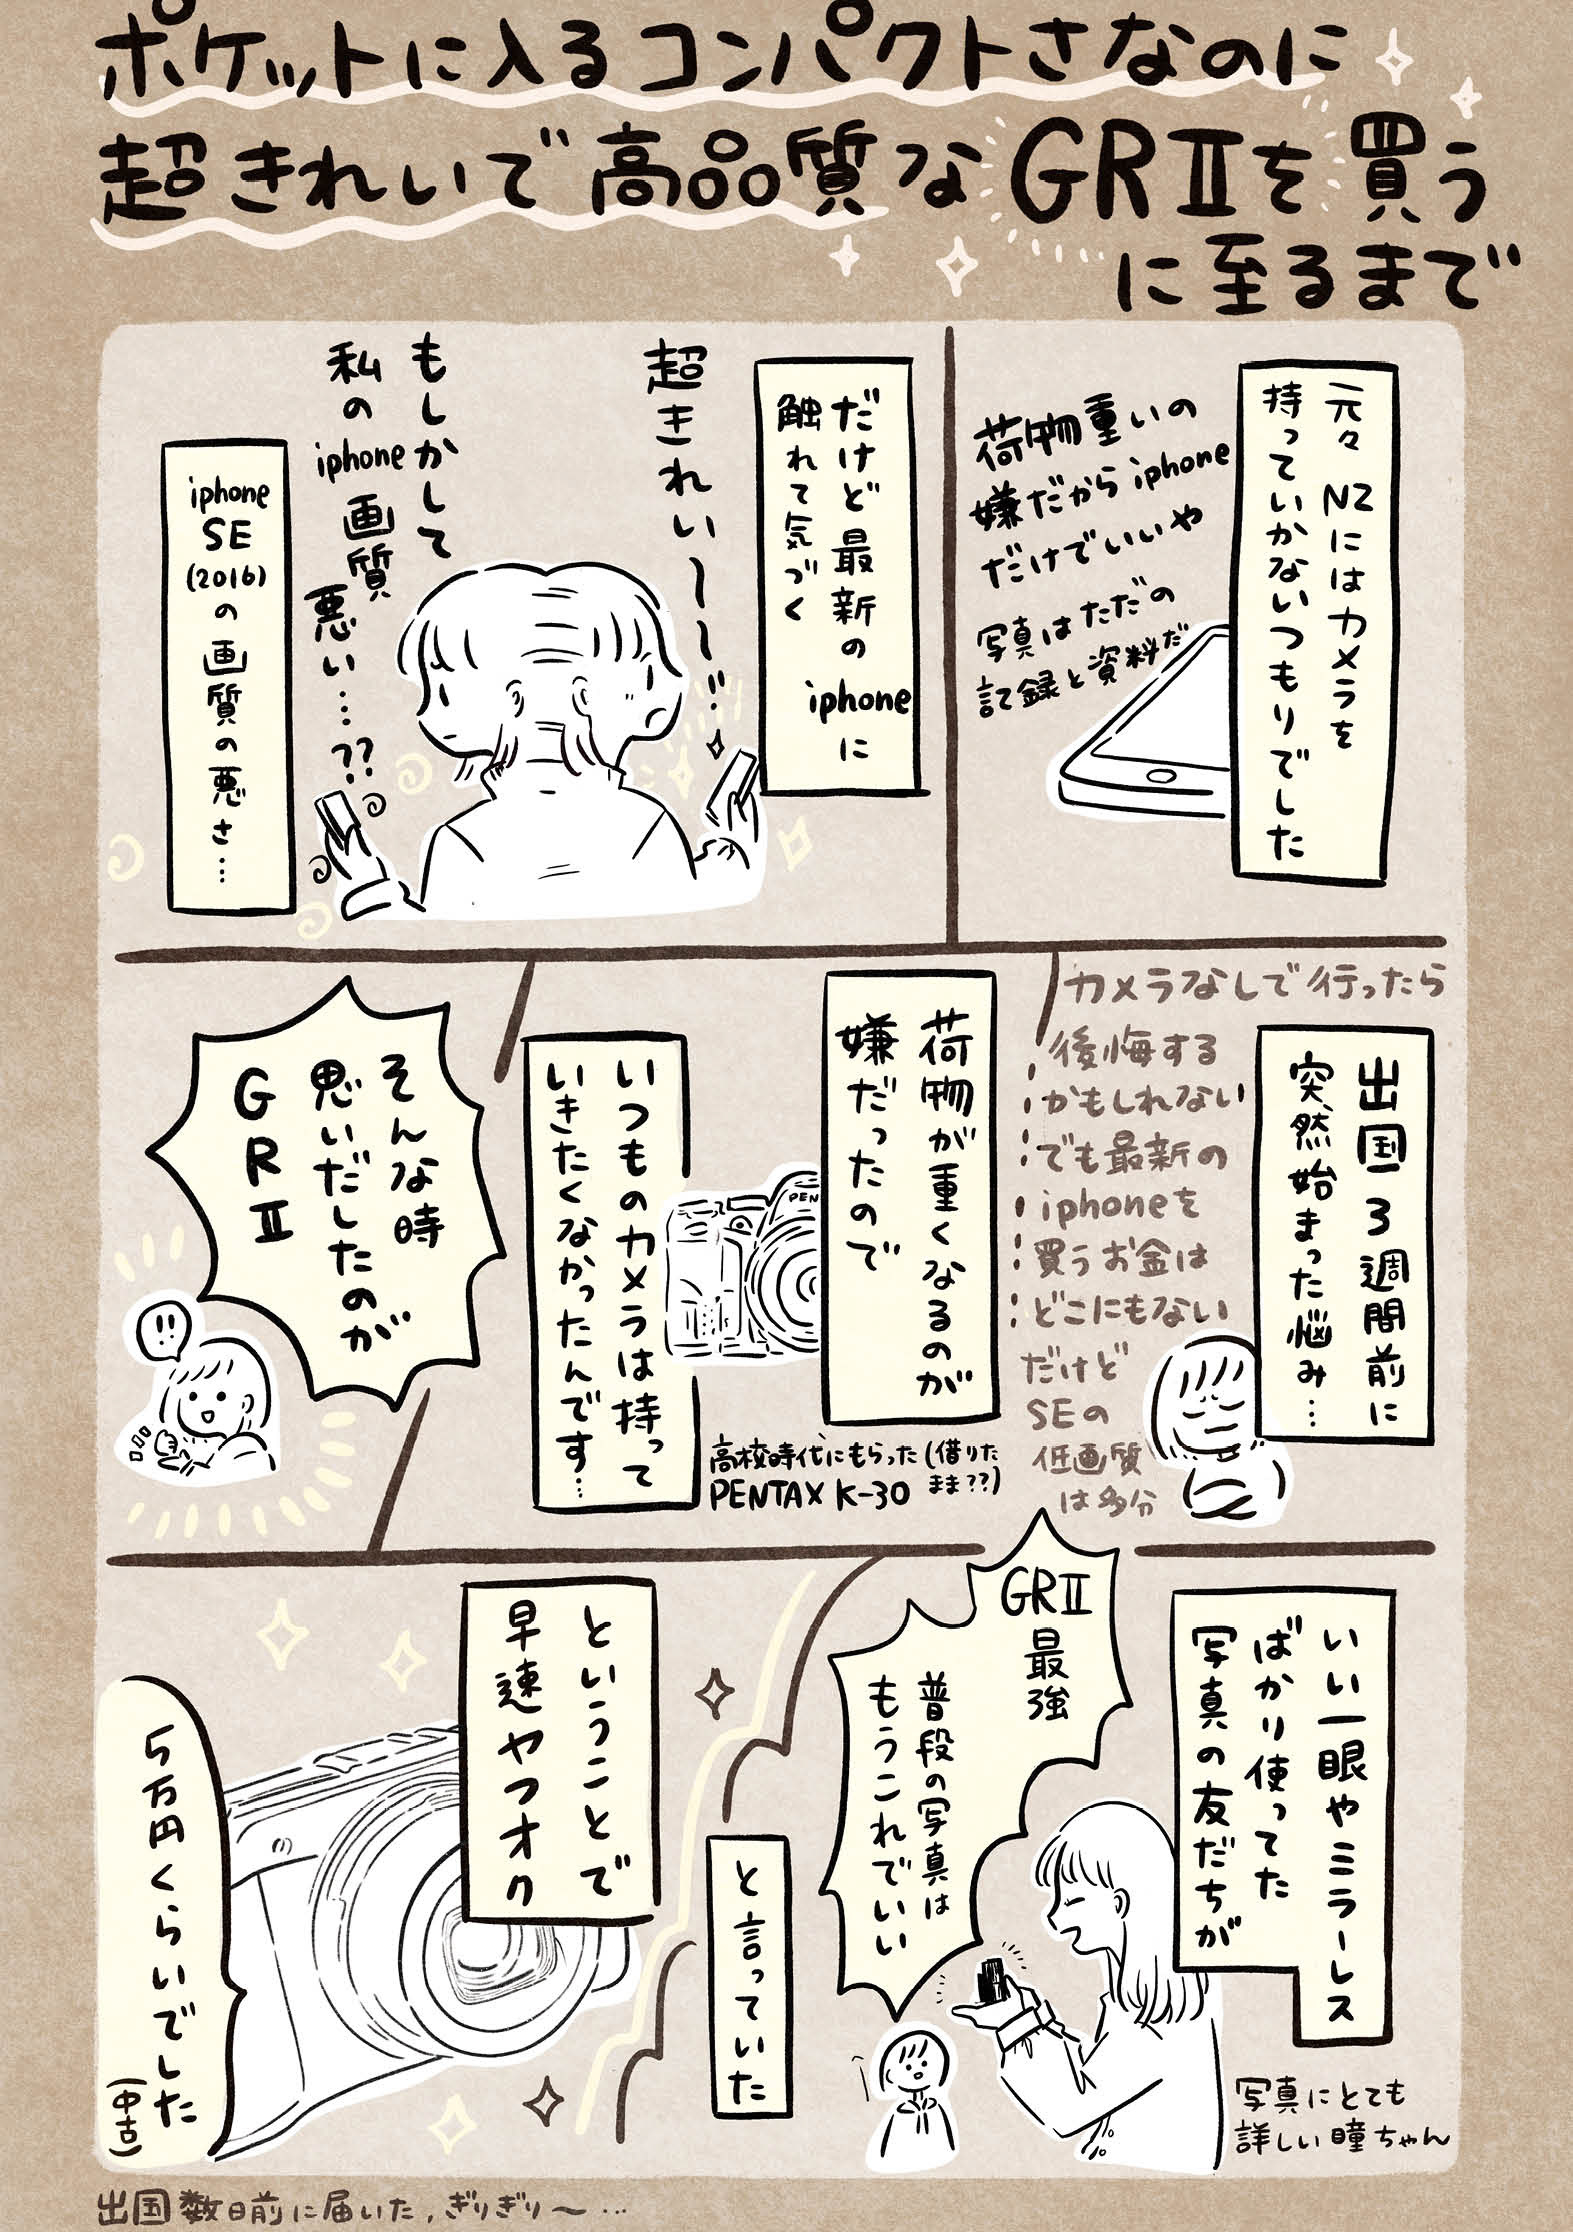 ポケットに入るコンパクトさなのに
超きれいで高品質なGRⅡを買う
に至るまで
元々NZにはカメラを
持っていかないつもりでした
荷物重いの
嫌だからiphone
だけでいいや
写真はただの
記録と資料だ
だけど最新のiphoneに
触れて気づく
超きれい〜〜!!
もしかして
私のiphone画質
悪い…??
iphone
SE
(2016)
の画質の悪さ…
出国3週間前に
突然始まった悩み…
カメラなしで行ったら
後悔する
かもしれない
でも最新の
iphoneを
買うお金は
どこにもない
だけど
SEの
低画質
は多分
荷物が重くなるのが
嫌だったので
PEN
いつものカメラは持って
いきたくなかったんです…
高校時代にもらった(借りた
まま??)
PENTAX K-30
そんな時
思いだしたのが
GRⅡ
!!
いい一眼やミラーレス
ばかり使ってた
写真の友だちが
GRⅡ
最強
普段の写真は
もうこれでいい
写真にとても
詳しい瞳ちゃん
と言っていた
ということで
早速ヤフオク
5万円くらいでした
(中古)
出国数日前に届いた,ぎりぎり〜…